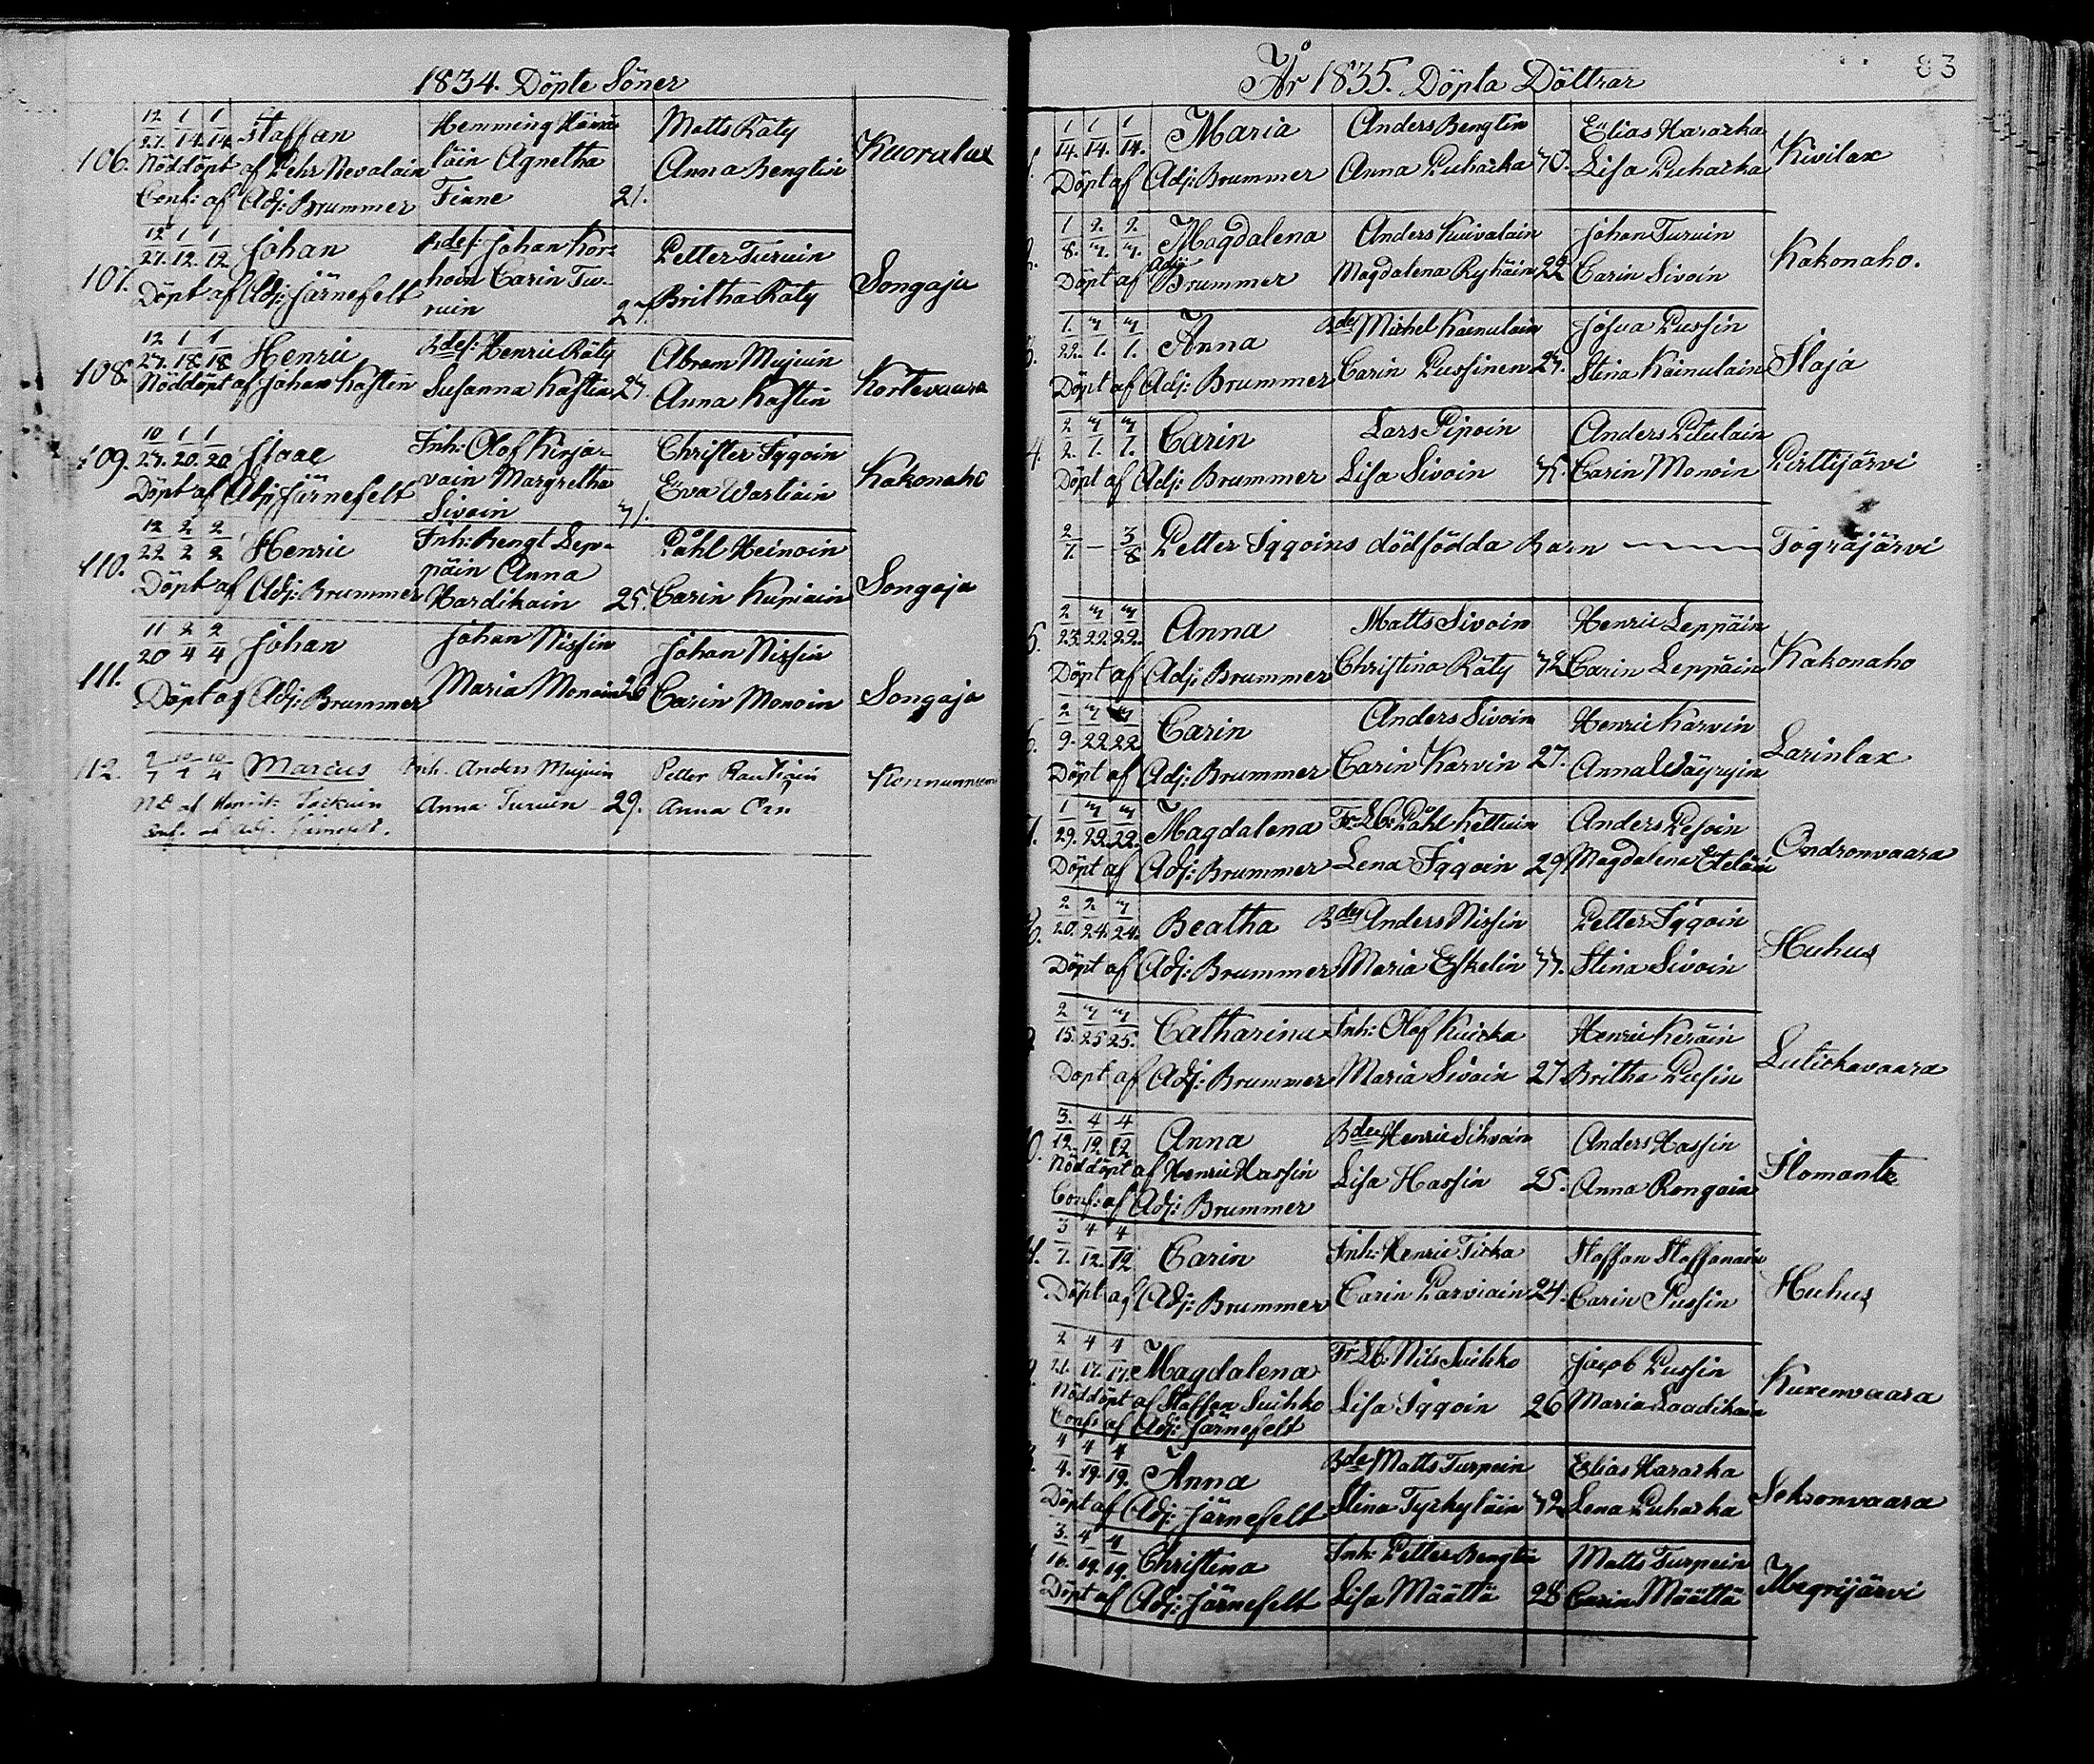 1834. Döpte Söner
12/27. 1/14. 1/14. Staffan Hemming Hämä- Matts Räty
106. Nöddöpt af Pehr Nevalain läin Agnetha Anna Bengtin Kuoralax
Conf: af Adj: Brummer Finne 21.
12/27. 1/12. 1/12 Johan Bdes: Johan Kor- Petter Turuin
107. Döpt af Adj: Järnefelt hoin Carin Tu- Britha Räty Songaja
ruin 27.
12/27. 1/18. 1/18 Henric Bdes: Henric Räty Abram Mujuin
108. Nöddöpt af Johan Kastin Susanna Kastin 27. Anna Kastin Kortevaara
10/27. 1/20. 1/20 Isaac Inh: Olof Kirja- Christer Iggoin
109. Döpt af Adj: Järnefelt vain Margretha Eva Wartiain Kakonaho
Sivoin 31.
12/22 2/2 2/2 Henric Inh: Bengt Lep- Påhl Heinoin
110. Döpt af Adj: Brummer päin Anna Carin Kupiain Songaja
Hardikain 25.
11/20 2/4 2/4 Johan Johan Nissin Johan Nissin
111. Döpt af Adj: Brummer Maria Monoin 26 Carin Monoin Songaja
112. 9/7 10/4 10/4 Marcus Inh. Anders Mujuin Petter
ND af Henrik Anna Turuin 29. Anna
Conf. af Adj. Järnefelt.
83
År 1835. Döpta Döttrar
1/14. 1/14. 1/14. Maria Anders Bengtin Elias Hararka
Döpt af Adj: Brummer Anna Puharka 30. Lisa Puharka Kivilax
1/8. 2/3. 2/3. Magdalena Anders Kuivalain Johan Turuin
Döpt af Adj: Brummer Magdalena Ryhäin 22 Carin Sivoin Kakonaho.
1/22. 3/1. 3/1. Anna Bde Michel Kainulain Josua Pussin
Döpt af Adj: Brummer Carin Pussinen 27. Stina Kainulain Ilaja
4. 2/2. 3/1. 3/1. Carin Lars Pipoin Anders Pitulain
Döpt af Adj: Brummer Lisa Sivoin Carin Monoin Pirttijärvi
2/1 — 3/8 Petter Iggoins dödfödda Barn Tograjärvi
5. 2/23. 3/22. 3/22. Anna Matts Sivoin Henric Leppäin
Döpt af Adj: Brummer Christina Räty 32 Carin Leppäin Kakonaho
6. 2/9. 3/22 3/22 Carin Anders Sivoin Henric Karvin
Döpt af Adj: Brummer Carin Karvin 27. Anna Wäyryin Larinlax
7. 1/29. 3/22. 3/22. Magdalena Fr. Lb: Påhl Kettuin Anders Pesoin
Döpt af Adj: Brummer Lena Iggoin 29 Magdalena Eteläin Ondronvaara
8. 2/20. 2/24. 3/24. Beatha Bdes Anders Nissin Petter Iggoin
Döpt af Adj: Brummer Maria Eskelin 33. Stina Sivoin Huhus
9 2/15. 3/25 3/25. Catharina Inh: Olof Kuicka Henric Keräin
Döpt af Adj: Brummer Maria Sivoin 27 Britha Pusin Lutickavaara
10. 3/12. 4/12 4/12 Anna Bdes Henric Sihvoin Anders Hassin
Nöddöpt af Henric Hassin Lisa Hassin 25. Anna Rongain Ilomants
Conf: af Adj: Brummer
11. 3/7. 4/12. 4/12 Carin Inh: Henric Tirka Staffan Staffanain
Döpt af Adj: Brummer Carin Parviain 24. Carin Pussin Huhus
2/21. 4/17. 4/17. Magdalena Fr. Lb: Nils Suihko Jacob Pussin
Nöddöpt af Staffan Suihko Lisa Iggoin 26 Maria Laadikain Kuxenvaara
Conf: af Adj: Järnefelt
4/4. 4/19. 4/19. Anna Bde Matts Turpein Elias Hararka
Döpt af Adj: Järnefelt Stina Tyrkyläin 32 Lena Puharka Seksonvaara
3/16. 4/19. 4/19. Christina Inh: Petter Bengtin Matts Turpein
Döpt af Adj: Järnefelt Lisa Määttä 28 Carin Määttä Megrijärvi